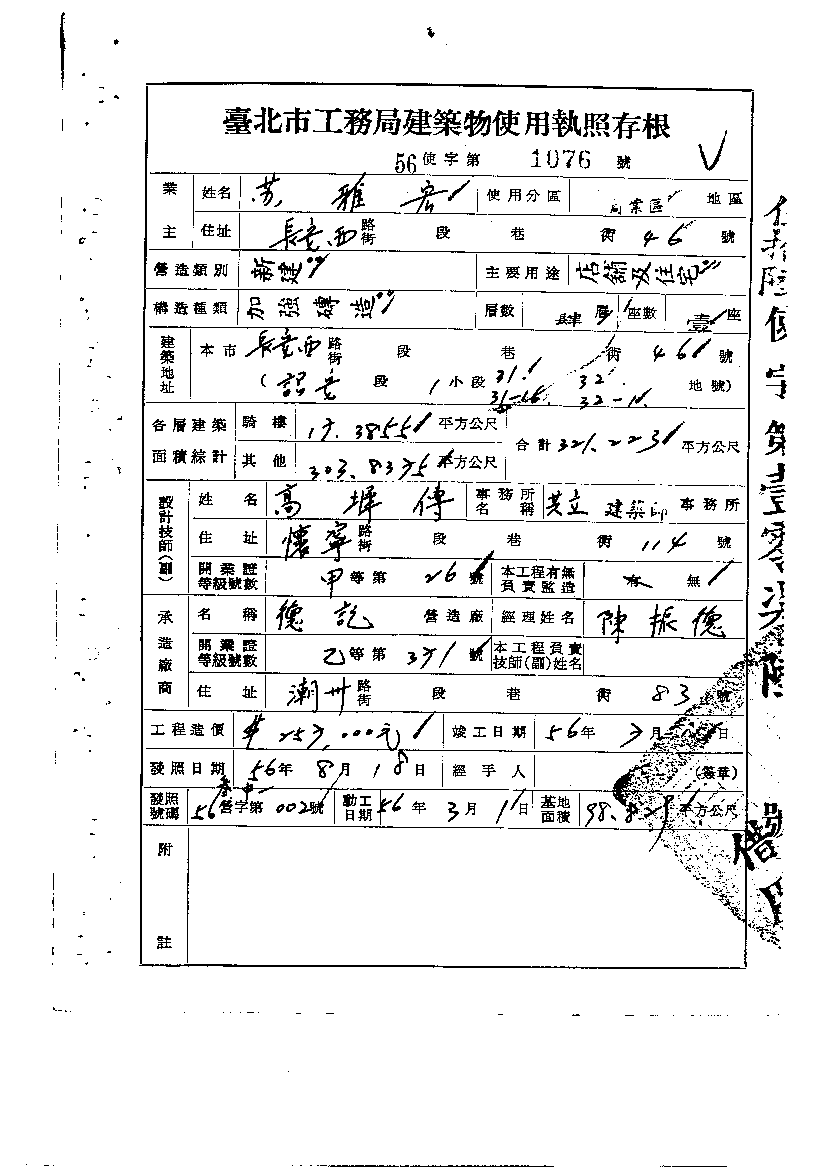 臺北市工務局建築物使用執照存根
56使字第 1076 號
業主 姓名 雅宏 使用分區 商業區 地區
住址 長安西路街 段 巷 街 46 號
營造類別 新建 主要用途 店鋪及住宅
構造種類 加強磚造 層數 肆層 座數 壹座
建築地址 本市 長安西路街 段 巷 街 46 號
( 段 1小段 31. 32 地號)
各層建築面積綜計 騎樓 17.3855 平方公尺 合計 321.223 平方公尺
其他 303.8375 平方公尺
設計技師(副) 姓名 高 傳 事務所名稱 共立 建築師 事務所
住址 懷寧路街 段 巷 街 114 號
開業證等級號數 甲等第 26 號 本工程有無負責監造 有 無
承造廠商 名稱 德記 營造廠 經理姓名 陳振德
開業證等級號數 乙等第 371 號 本工程負責技師(副)姓名
住址 潮州路街 段 巷 街 83 號
工程造價 竣工日期 56年 7月 日
發照日期 56年 8月 18日 經手人 (簽章)
發照號碼 56 營字第 002號 動工日期 56年 3月 1日 基地面積 98. 平方公尺
附註